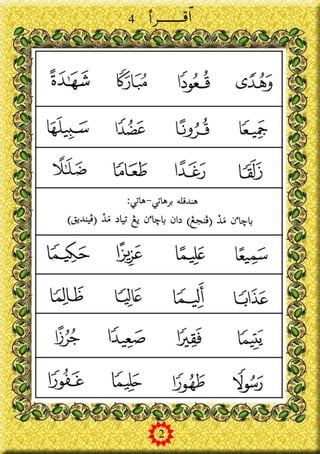 ٱقــرأ 4
وَهُدًى قُعُودًا مُبَارَكًا شَهَـٰدَةً
جَمِيعًا قُرُونًا عَضُدًا سَبِيلَهَا
زَلَقًا رَغَدًا طَعَامًا ضَلَـٰلًا
هندقله برهاتي-هاتي:
باچاءن مَدْ (ڤنجڠ) دان باچاءن يڠ تياد مَدْ (ڤينديق)
سَمِيعًا عَلِيمًا عَزِيزًا حَكِيمًا
عَذَابًا أَلِيمًا عَالِيًا ظَالِمًا
يَتِيمًا فَقِيرًا صَعِيدًا جُرُزًا
رَسُولًا طَهُورًا حَلِيمًا غَفُورًا
2